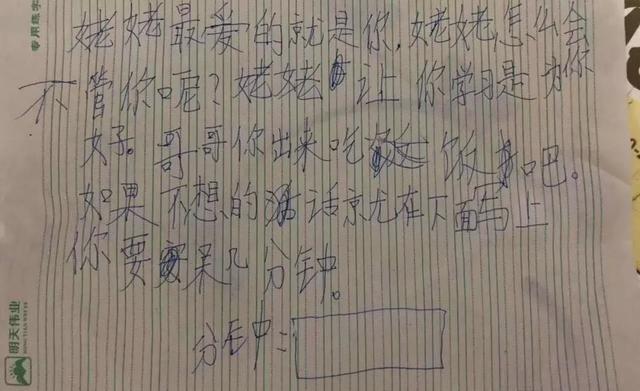 姥姥最爱的就是你，姥姥怎么会
不管你呢？姥姥让你学习是为你
好。哥哥你出来吃饭吧。
如果不想的话就在下面写上
你要呆几分钟。
分钟=
专用练字
明天伟业
MING TIAN WEI YE